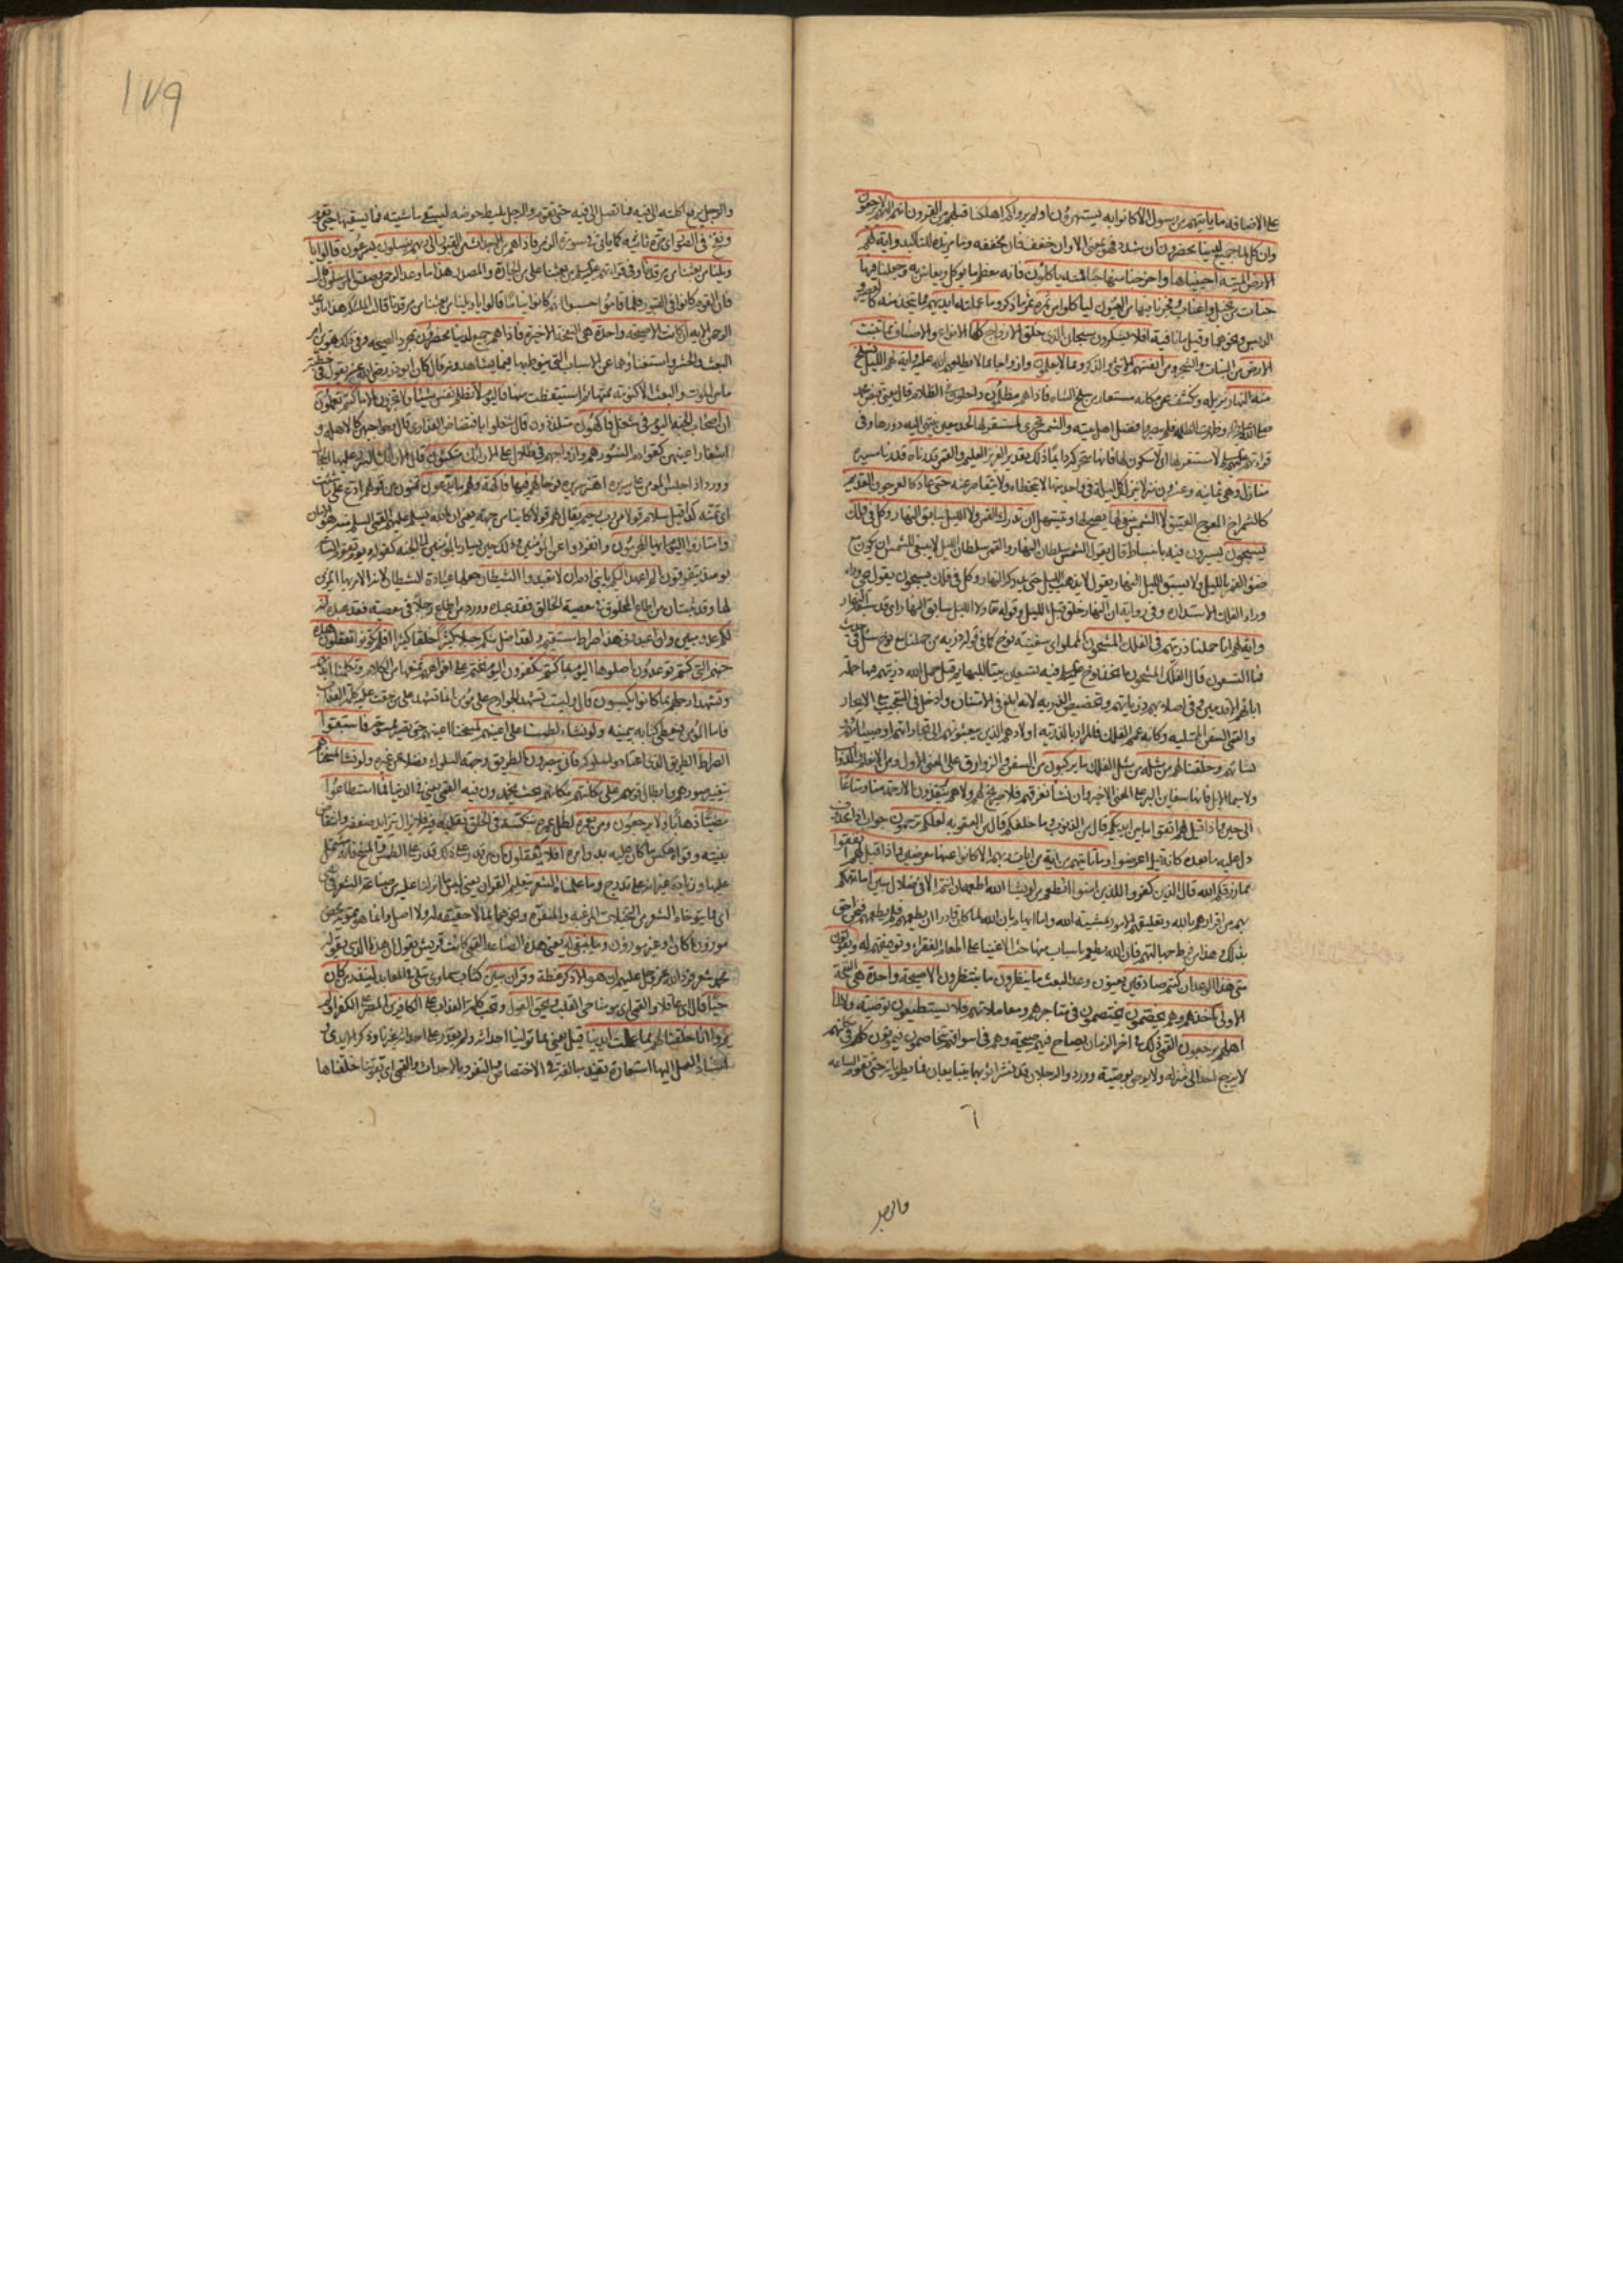 على الاضافة ما ياتيهم من رسول الا كانوا به يستهزؤن اولم يروا كم اهلكنا قبلهم من القرون انهم اليهم لا يرجعون
وان كل لما جميع لدينا محضرون ان شدد فهو بمعنى الا وان خفف فان مخففه وما مزيدة للتاكيد واية لهم
الارض الميتة احييناها واخرجنا منها حبا فمنه ياكلون فانه معظم ما يوكل ويعاش به وجعلنا فيها
جنات من نخيل واعناب وفجرنا فيها من العيون لياكلوا من ثمره ثمر ما ذكر وما عملته ايديهم مما يتخذ منه كالعصير و
الدبس ونحوهما وقيل ما نافية افلا يشكرون سبحان الذي خلق الازواج كلها الانواع والاصناف مما تنبت
الارض من النبات والشجر ومن انفسهم الانثى والذكر ومما لا يعلمون وازواجا مما لا يطلعهم الله عليه واية لهم الليل نسلخ
منه النهار نزيله ونكشف عن مكانه مستعار من سلخ الشاه فاذا هم مظلمون داخلون في الظلام قال يعني قبض محمد
صلى الله عليه واله وظهرت الظلمة فلم يبصروا فضل اهل بيته والشمس تجري لمستقر لها لحد معين ينتهي اليه دورها وفي
قراءتهم عليهم السلام لا مستقر لها اي لا سكون لها فانها متحركة دايما ذلك تقدير العزيز العليم والقمر قدرناه قدرنا مسيره
منازل وهي ثمانية وعشرون ينزل كل ليلة في واحد منها لا يتخطاه ولا يتقاصر عنه حتى عاد كالعرجون القديم
كالشمراخ المعوج العتيق لا الشمس ينبغي لها يصح لها ويتسهل ان تدرك القمر ولا الليل سابق النهار وكل في فلك
يسبحون يسيرون فيه بانبساط قال يقول الشمس سلطان النهار والقمر سلطان الليل لا ينبغي للشمس ان تكون مع
ضوء القمر بالليل ولا يسبق الليل النهار يقول لا يذهب الليل حتى يدركه النهار وكل في فلك يسبحون يقول يجي وراء
وراء الفلك الاستدارة وفي رواية ان النهار خلق قبل الليل وقوله تعالى ولا الليل سابق النهار اي قد سبقه النهار
واية لهم انا حملنا ذريتهم في الفلك المشحون المملو اي سفينة نوح كما في قوله ذرية من حملنا مع نوح سئل في حديث
فما التسعون قال الفلك المشحون اتخذ نوح عليه السلام فيه تسعين بيتا للبهايم قيل حمل الله ذريتهم فيها حمل
ابائهم الاقدمين وفي اصلابهم ذرياتهم وتخصيص الذرية لانه ابلغ في الامتنان وادخل في التعجيب مع الايجاز
والقمي السفن الممتلية وكانه عمم الفلك فالمراد بالذرية اولادهم الذين يبعثونهم الى تجاراتهم او صبيانهم و
نسائهم وخلقنا لهم من مثله من مثل الفلك ما يركبون من السفن والزوارق على المعنى الاول ومن الانعام والدواب
ولا سيما الابل فانها سفاين البر على المعنى الاخير وان نشا نغرقهم فلا صريخ لهم ولا هم ينقذون الا رحمة منا ومتاعا
الى حين واذا قيل لهم اتقوا ما بين ايديكم قال من الذنوب وما خلفكم قال من العقوبة لعلكم ترحمون جواب اذا محذوف
دل عليه ما بعده كانه قيل اعرضوا وما تاتيهم من اية من ايات ربهم الا كانوا عنها معرضين واذا قيل لهم انفقوا
مما رزقكم الله قال الذين كفروا للذين امنوا انطعم من لو يشاء الله اطعمه ان انتم الا في ضلال مبين اما تهكم
بهم من اقرارهم بالله وتعليقهم الامور بمشيته الله واما ايهام بان الله لما كان قادرا ان يطعمهم فلم يطعمهم فنحن احق
بذلك وهذا من فرط جهالتهم فان الله يطعم باسباب منها حث الاغنيا على اطعام الفقراء وتوفيقهم له ويقولون
متى هذا الوعد ان كنتم صادقين يعنون وعد البعث ما ينظرون ما ينتظرون الا صيحة واحدة هي النفخة
الاولى تاخذهم وهم يخصمون يختصمون في متاجرهم ومعاملاتهم فلا يستطيعون توصية ولا الى
اهلهم يرجعون القمي ذلك في اخر الزمان يصاح فيهم صيحة وهم في اسواقهم يتخاصمون فيموتون كلهم في مكانهم
لا يرجع احد الى منزله ولا يوصي بوصية وورد والرجلان قد نشرا ثوبهما يتبايعان فما يطويانه حتى تقوم الساعة
والرجل
١٧٩
والرجل يرفع اكلته الى فيه فما تصل الى فيه حتى تقوم والرجل يليط حوضه ليسقي ماشيته فما يسقيها حتى تقوم
ونفخ في الصور اي مرة ثانية كما ياتي في سورة الزمر فاذا هم من الاجداث من القبور الى ربهم ينسلون يسرعون قالوا يا
ويلنا من بعثنا من مرقدنا وفي قراءتهم عليهم السلام من بعثنا على من الجارة والمصدر هذا ما وعد الرحمن وصدق المرسلون
فان القوم كانوا في القبور فلما قاموا حسبوا انهم كانوا نياما قالوا يا ويلنا من بعثنا من مرقدنا قالت الملئكة هذا ما وعد
الرحمن الاية ان كانت الا صيحة واحدة هي النفخة الاخيرة فاذا هم جميع لدينا محضرون بمجرد الصيحة وفي ذلك تهوين امر
البعث والحشر واستغناؤهما عن الاسباب التي ينوطانها فيما يشاهدونه قال كان ابوذر رضي الله عنه يقول في خطبته
ما بين الموت والبعث الا كنومة نمتها ثم استيقظت منها فاليوم لا تظلم نفس شيئا ولا تجزون الا ما كنتم تعملون
ان اصحاب الجنة اليوم في شغل فاكهون متلذذون قال شغلوا بافتضاض العذارى قال
هم وازواجهم في ظلال على الارائك متكئون
لهم فيها فاكهة ولهم ما يدعون
سلام قولا من رب رحيم
وامتازوا اليوم ايها المجرمون وانفردوا عن المؤمنين وذلك حين يسار بالمؤمنين الى الجنة كقوله ويوم تقوم الساعة
يومئذ يتفرقون الم اعهد اليكم يا بني ادم ان لا تعبدوا الشيطان جعلها عبادة للشيطان لانه الامر بها المزين
لها وقد ثبت ان من اطاع المخلوق في معصية الخالق فقد عبده وورد من اطاع رجلا في معصية فقد عبده انه
لكم عدو مبين وان اعبدوني هذا صراط مستقيم ولقد اضل منكم جبلا كثيرا خلقا كثيرا افلم تكونوا تعقلون هذه
جهنم التي كنتم توعدون اصلوها اليوم بما كنتم تكفرون اليوم نختم على افواههم نمنعها من الكلام وتكلمنا ايديهم
وتشهد ارجلهم بما كانوا يكسبون قال وليست تشهد الجوارح على مؤمن انما تشهد على من حقت عليه كلمة العذاب
فاما المؤمن فيعطى كتابه بيمينه ولو نشاء لطمسنا على اعينهم لمسخنا اعينهم حتى تصير ممسوحة فاستبقوا
الصراط الطريق الذي اعتادوا سلوكه فانى يبصرون الطريق وجهة السلوك فضلا عن غيره ولو نشاء لمسخناهم
بتغيير صورهم وابطال قويهم على مكانتهم مكانهم بحيث يخمدون فيه القمي يعني في الدنيا فما استطاعوا
مضيا ذهابا ولا يرجعون ومن نعمره نطل عمره ننكسه في الخلق نقلبه فيه فلا يزال يتزايد ضعفه وانتقاص
بنيته وقواه عكس ما كان عليه بدو امره افلا يعقلون ان من قدر على ذلك قدر على الطمس والمسخ فانه مشتمل
عليهما وزيادة غير انه على تدرج وما علمناه الشعر بتعليم القران يعني ليس ما انزلنا عليه من صناعة الشعر في شي
اي مما يتوخاه الشعراء من التخيلات المرغبة والمنفرة ونحوهما مما لا حقيقة له ولا اصل وانما هو تمويه محض
موزونا كان او غير موزون وما ينبغي له يعني هذه الصناعة القمي كانت قريش تقول ان هذا الذي يقوله
محمد شعر فرد الله عز وجل عليهم ان هو الا ذكر عظة وقران مبين كتاب سماوي يتلى في المعابد لينذر من كان
حيا قال اي عاقلا والقمي اي مؤمنا حي القلب ويحق القول وتجب كلمة العذاب على الكافرين المصرين على الكفر اولم
يروا انا خلقنا لهم مما عملت ايدينا قيل يعني مما تولينا احداثه ولم يقدر على احداثه غيرنا وذكر الايدي و
اسناد العمل اليها استعارة تفيد مبالغة في الاختصاص والتفرد بالاحداث والقمي اي بقوتنا خلقناها